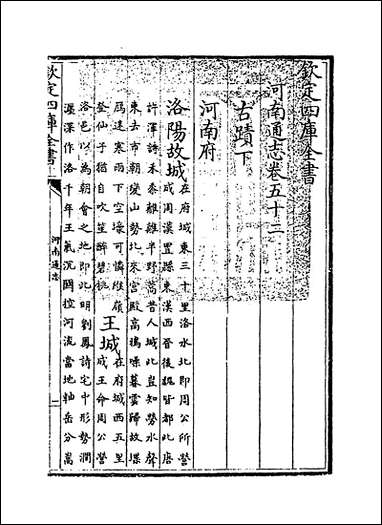 欽定四庫全書
河南通志卷五十二
古蹟下
河南府
洛陽故城 在府城東三十里洛水北即周公所營
成周漢置縣東漢西晉後魏皆都此唐
許渾詩禾黍離離半野蒿昔人城此豈知勞水聲
東去市朝變山勢北來宮殿高鴉噪暮雲歸故堞
鴈迷寒雨下空壕可憐緱嶺
登仙子猶自吹笙醉碧桃
王城 在府城西五里
成王命周公營
洛邑以為朝會之地即此明劉鳳詩宅中形勢澗
瀍深作洛千年王氣沉關控河流當地軸岳分嵩
欽定四庫全書
河南通志
一